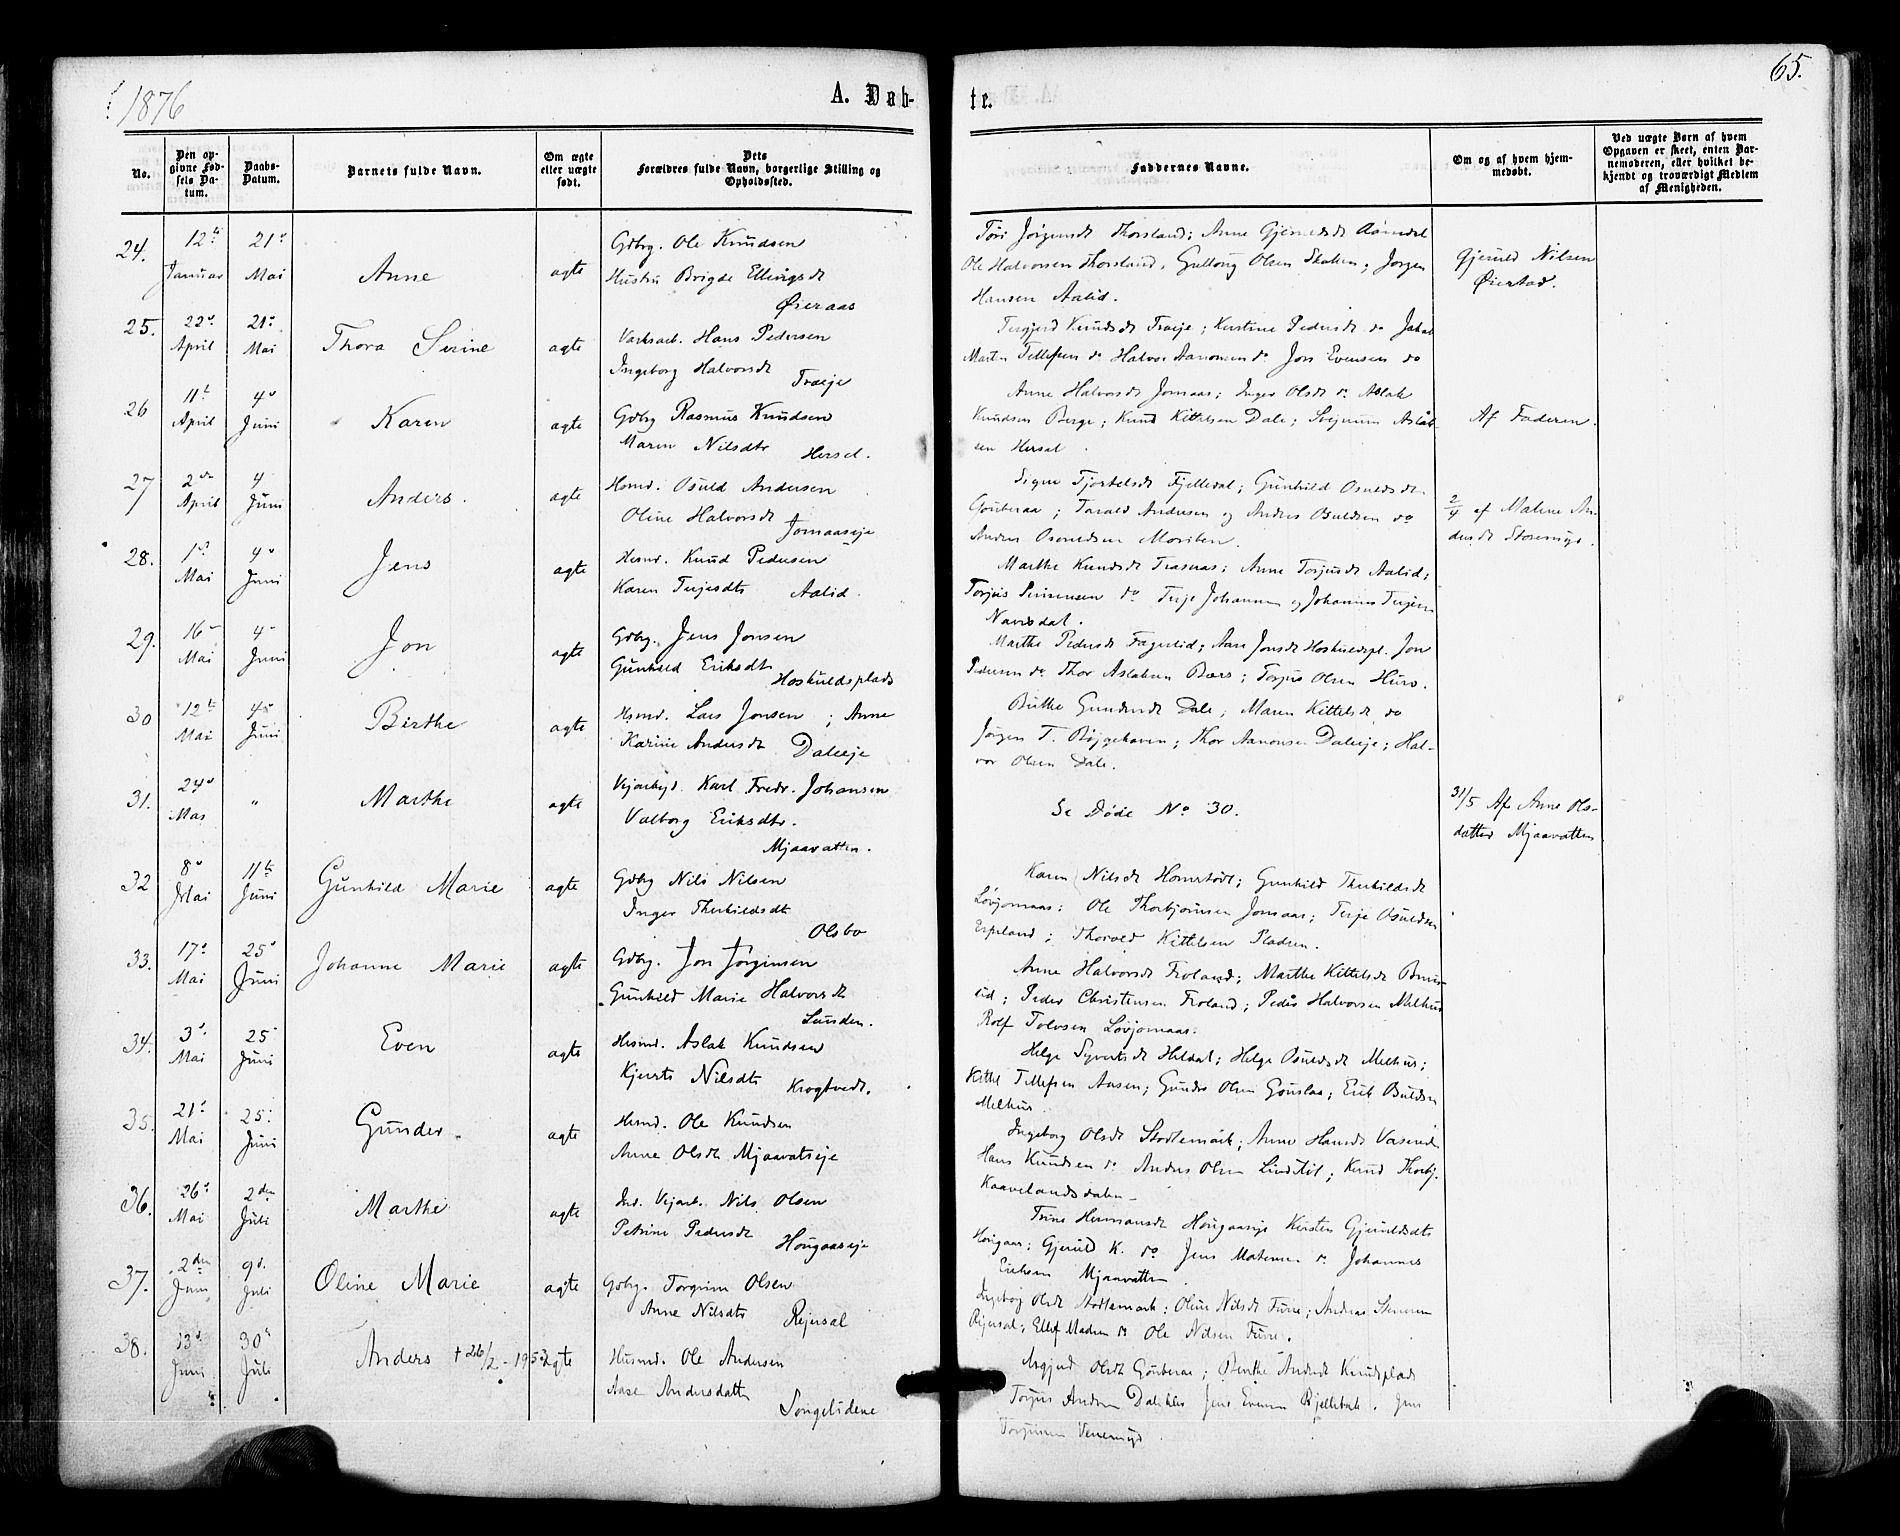 1876
A. Daab-
te.
65.
No.
Den op-
givne Fød-
sels Da-
tum.
Daabs-
Datum.
Barnets fulde Navn.
Om ægte
eller uægte
født.
Dets
Forældres fulde Navn, borgerlige Stilling og
Opholdssted.
Faddernes Navne.
Om og af hvem hjem-
medøbt.
Ved uægte Børn af hvem
Opgaven er skeet, enten Bar-
nemoderen, eller hvilket be-
kjendt og troværdigt Medlem
af Menigheden.
24.
12te
Januar
21de
Mai
Anne
ægte
Gdbrg. Ole Knudsen
Hustru Brigde Ellingsdt
Øieraas
Ole Halvorsen Thorsland, Gullong Olsen Jorgen
Hansen Aalid.
Gjeruld Nilsen
Øiestad.
25.
22d
April
21de
Mai
Thora Serine
ægte
Værksarb. Hans Pedersen
Ingeborg Halvorsdt
Traeje
Tergjerd Knudsdt Traeje; Kirstine Pedersdt do Jakob
Martin Tellefsen do Halvor Aanonsen do Jørs Evensen do
26
11te
April
4d
Juni
Karen
ægte
Gdbrg Rasmus Knudsen
Maren Nilsdtr
Hersel.
Anne Halvorsdt Jomaas; Inger Olsdt do Aslak
Knudsen Berge; Knud Kittelsen Dale; Aslak-
sen Hersel.
Af Faderen.
27
2den
April
4
Juni
Anders.
ægte
Hsmd. Osuld Andersen
Oline Halvorsdt
Jomaaseje
Signe Fjelledal; Gunhild Osuldsdt
Gouberaa; Tarald Andersen og Anders Osuldsen do
Anders Osmundsen
2/4 af Malene An-
dersdt Storemyr.
28.
1ste
Mai
4d
Juni
Jens
ægte
Hsmd. Knud Pedersen
Karen Terjesdtr Aalid.
Marthe Knudsdt Traaas; Anne Torjusdt Aalid;
Torjus Sørensen do Terje Johannesen og Johannes Terjesen
Navisdal.
29.
16de
Mai
4
Juni
Jon
ægte
Gdbrg. Jens Jonsen
Gunhild Eriksdt
Hoskuldsplads
Marthe Pedersdt Fagerlid; Aase Jonsdt Hoskuldspl. Jon
Pedersen do Thor Aslaksen Bærs; Torjus Olsen Hurv.
30
12te
Mai
4d
Juni
Birthe
ægte
Hsmd. Lars Jonsen; Anne
Karine Andersdt Daleeje
Birthe Gundersdt Dale; Maren Kittelsdt do
Jørgen T. Bøjgehaven; Thor Aanonsen Daleeje; Hal-
vor Olsen Dale.
31.
24d
Mai
"
Marthe
ægte
Vejarbejd. Karl Fredr. Johansen
Valborg Eriksdtr.
Mjaavatten.
Se Døde No 30.
31/5 Af Anne Ols-
datter Mjaavatten
32
8d
Mai
11te
Juni
Gunhild Marie
ægte
Gdbrg Nils Nilsen
Inger Therkildsdt
Olsbo
Karen Nilsdt Homstødt; Gunhild Therkildsdt
Løvjomaas; Ole Thorbjørnsen Jomaas; Terje Osuldsen
Espeland; Thorvald Kittelsen Pladsen.
33.
17de
Mai
25d
Juni
Johanne Marie
ægte
Gdbrg. Jon Jørginsen
Gunhild Marie Halvorsdt
Lunden.
Anne Halvorsdt Froland; Marthe Kittelsdt Bruus-
lid; Peder Christensen Froland; Peder Halvorsen Melhus
Rolf Tolvsen Løvjomaas.
34.
3d
Mai
25
Juni
Even
ægte
Hsmd. Aslak Knudsen
Kjersti Nilsdtr Krogtvedt.
Helge Syvertsdt Heldal; Helge Osuldsdt Melhus;
Kittel Tellefsen Aasen; Gunder Olsen Gouslaa; Erik Osuldsen
Melhus.
35.
21de
Mai
25de
Juni
Gunder.
ægte
Hsmd. Ole Knudsen
Anne Olsdt Mjaavatseje
Ingeborg Olsdt Stodlemork; Anne Hansdt
Hans Knudsen do Anders Olsen Lindtøl; Knud Thorbj.
Kaavelandsdalen
36.
26de
Mai
2den
Juli
Marthe
ægte
Ind. Vejarb. Nils Olsen
Petrine Pedersdt
Hougaaseje
Trine Hermansdt Hougaaseje Kirsten Gjeruldsdtr
Hougaas; Gjeruld K. do Jens Mathesen do Johannes
Eriksen Mjaavatten.
37.
2den
Juni
9d
Juli
Oline Marie
ægte
Gdbrg. Torgrim Olsen
Anne Nilsdtr
Rejersal
Ingeborg Olsdt Stodlemork; Oline Nilsdt Furre; Andreas
Rejersal; Ellef Madsen do Ole Nilsen Furre.
38.
13d
Juni
30te
Juli
Anders + 26/2 - 1953
ægte
Husmd. Ole Andersen
Aase Andersdatt
Songelidene
Asgjerd Olsdt Gouberaa; Berthe Andersdt Knudsplads
Torjus Andersen Jens Evensen Jens
Torjusen Venemyr